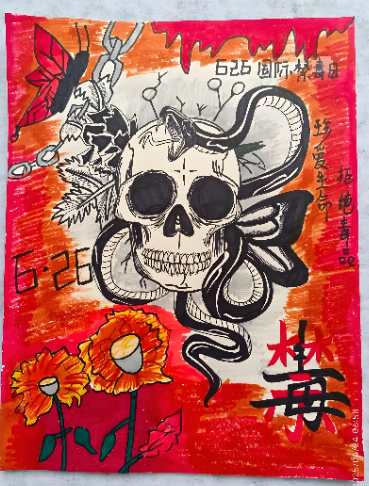 626国际禁毒日
珍爱生命
拒绝毒品
6·26
禁毒